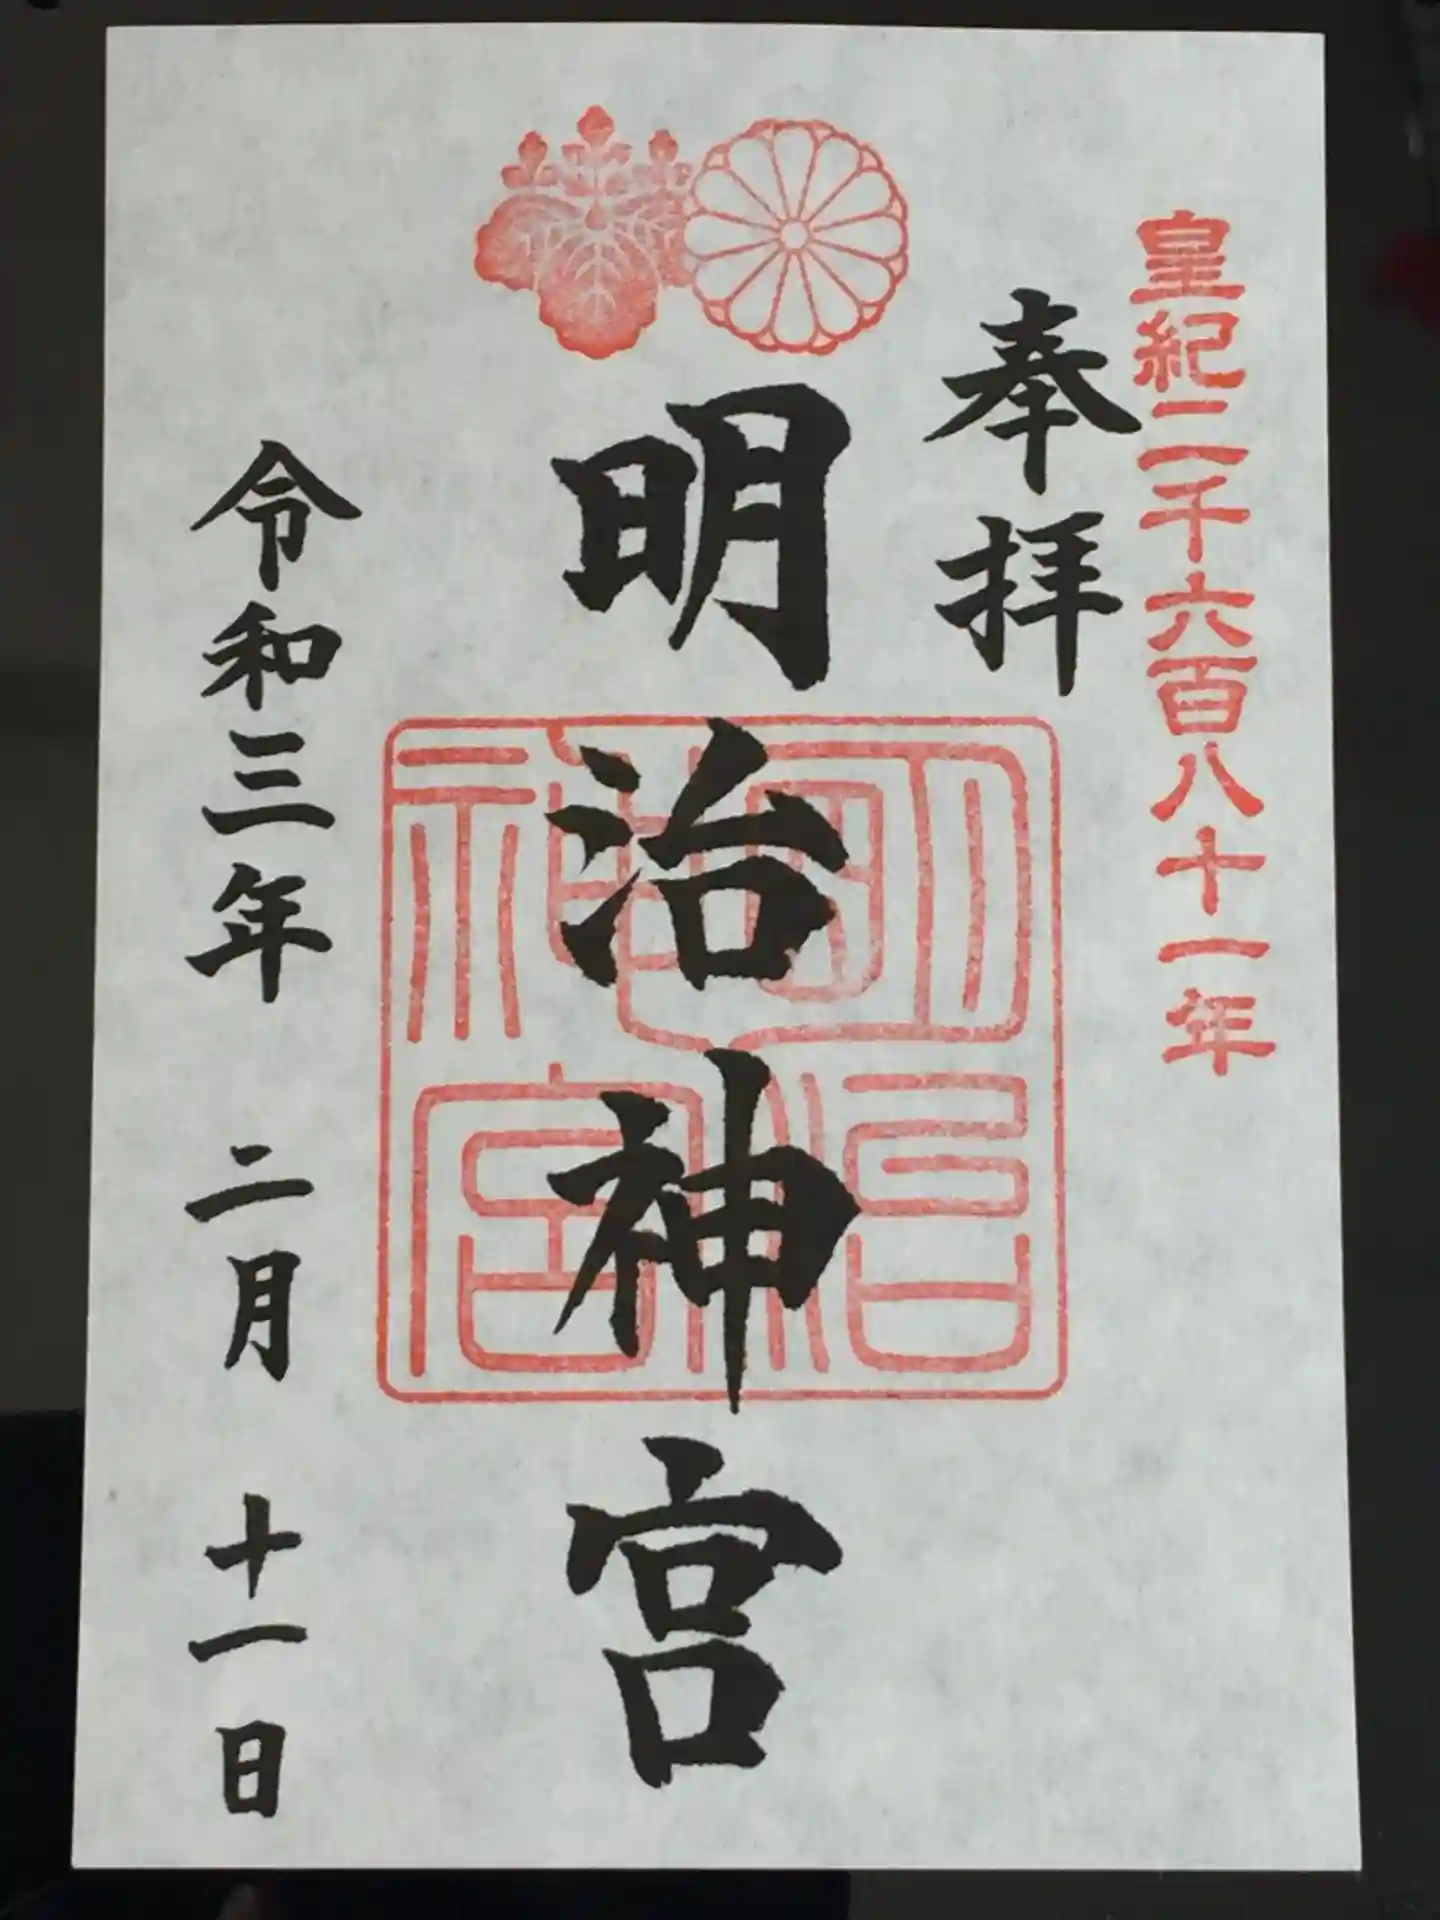 皇紀二千六百八十一年
奉拝
明治神宮
明治神宮
令和三年 二月 十一日